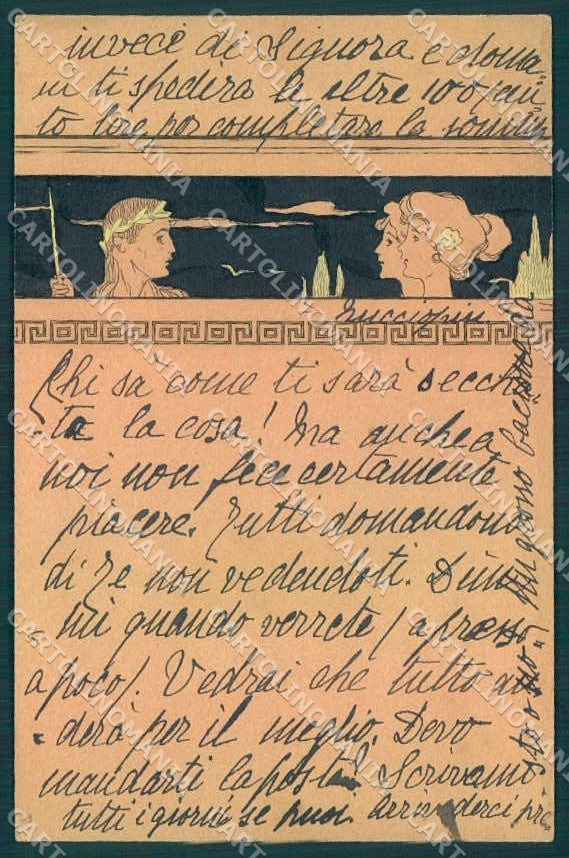 invece di Signora e doma=
ni ti spedirà le altre 100 cin=
to lire per completare la somma
Chi sa come ti sarà secch=
ta la cosa! Ma anche a
noi non fece certamente
piacere. Tutti domandono
di Te non vedendoti. Dim=
mi quando verrete (a presso
a poco). Vedrai che tutto an
derà per il meglio. Devo
mandarti la posta? Scrivimi
tutti i giorni se puoi. Arrivederci pre
sto o no
CARTOLINOMANIA